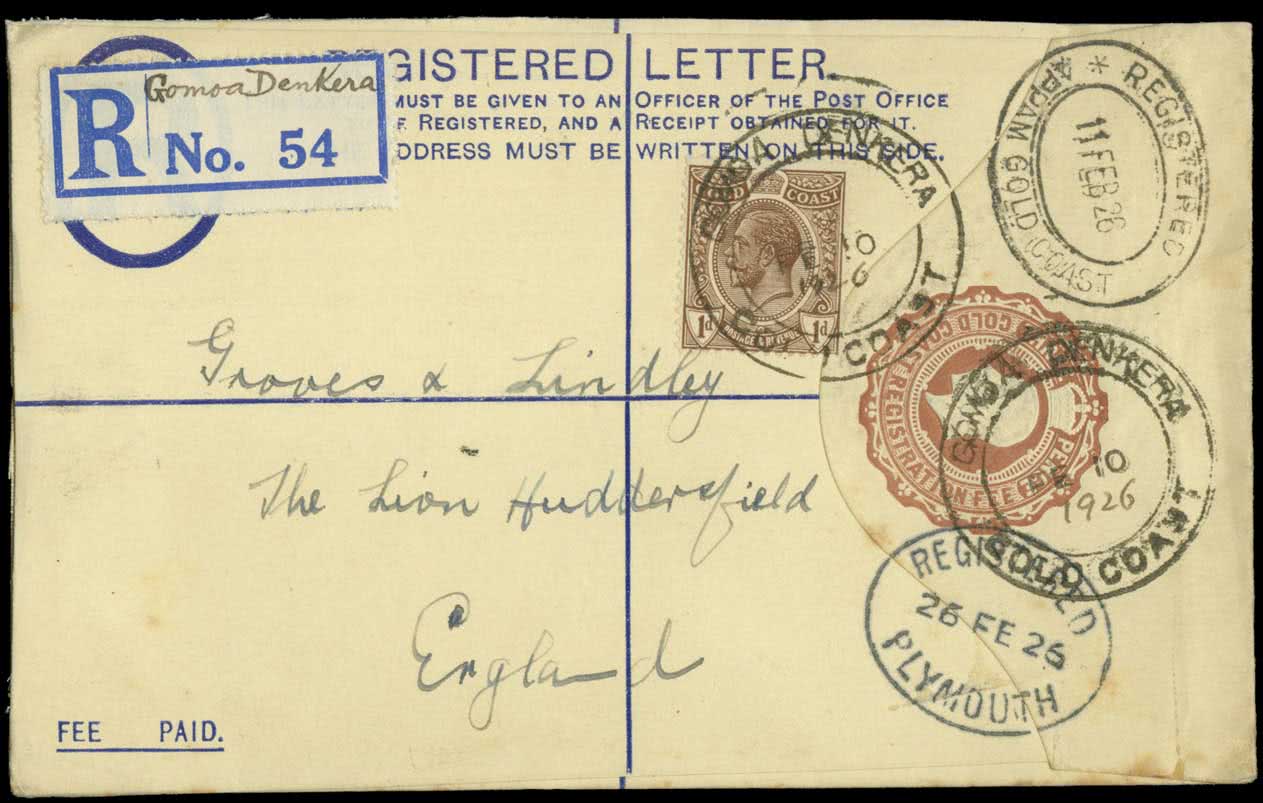 GISTERED LETTER.
MUST BE GIVEN TO AN OFFICER OF THE POST OFFICE
REGISTERED, AND A RECEIPT OBTAINED FOR IT.
DDRESS MUST BE WRITTEN ON THIS SIDE.
Gomoa Denkera
R No. 54
GOLD COAST
1d 1d
POSTAGE & REVENUE
GOMOA DENKERA
10
COAST
REGISTERED
APPAM GOLD COAST
11 FEB 26
GOLD COAST REGISTRATION FEE
PENCE
GOMOA DENKERA
FE 10
1926
GOLD COAST
REGISTERED
26 FE 26
PLYMOUTH
Groves & Lindley
The Lion Huddersfield
England
FEE PAID.